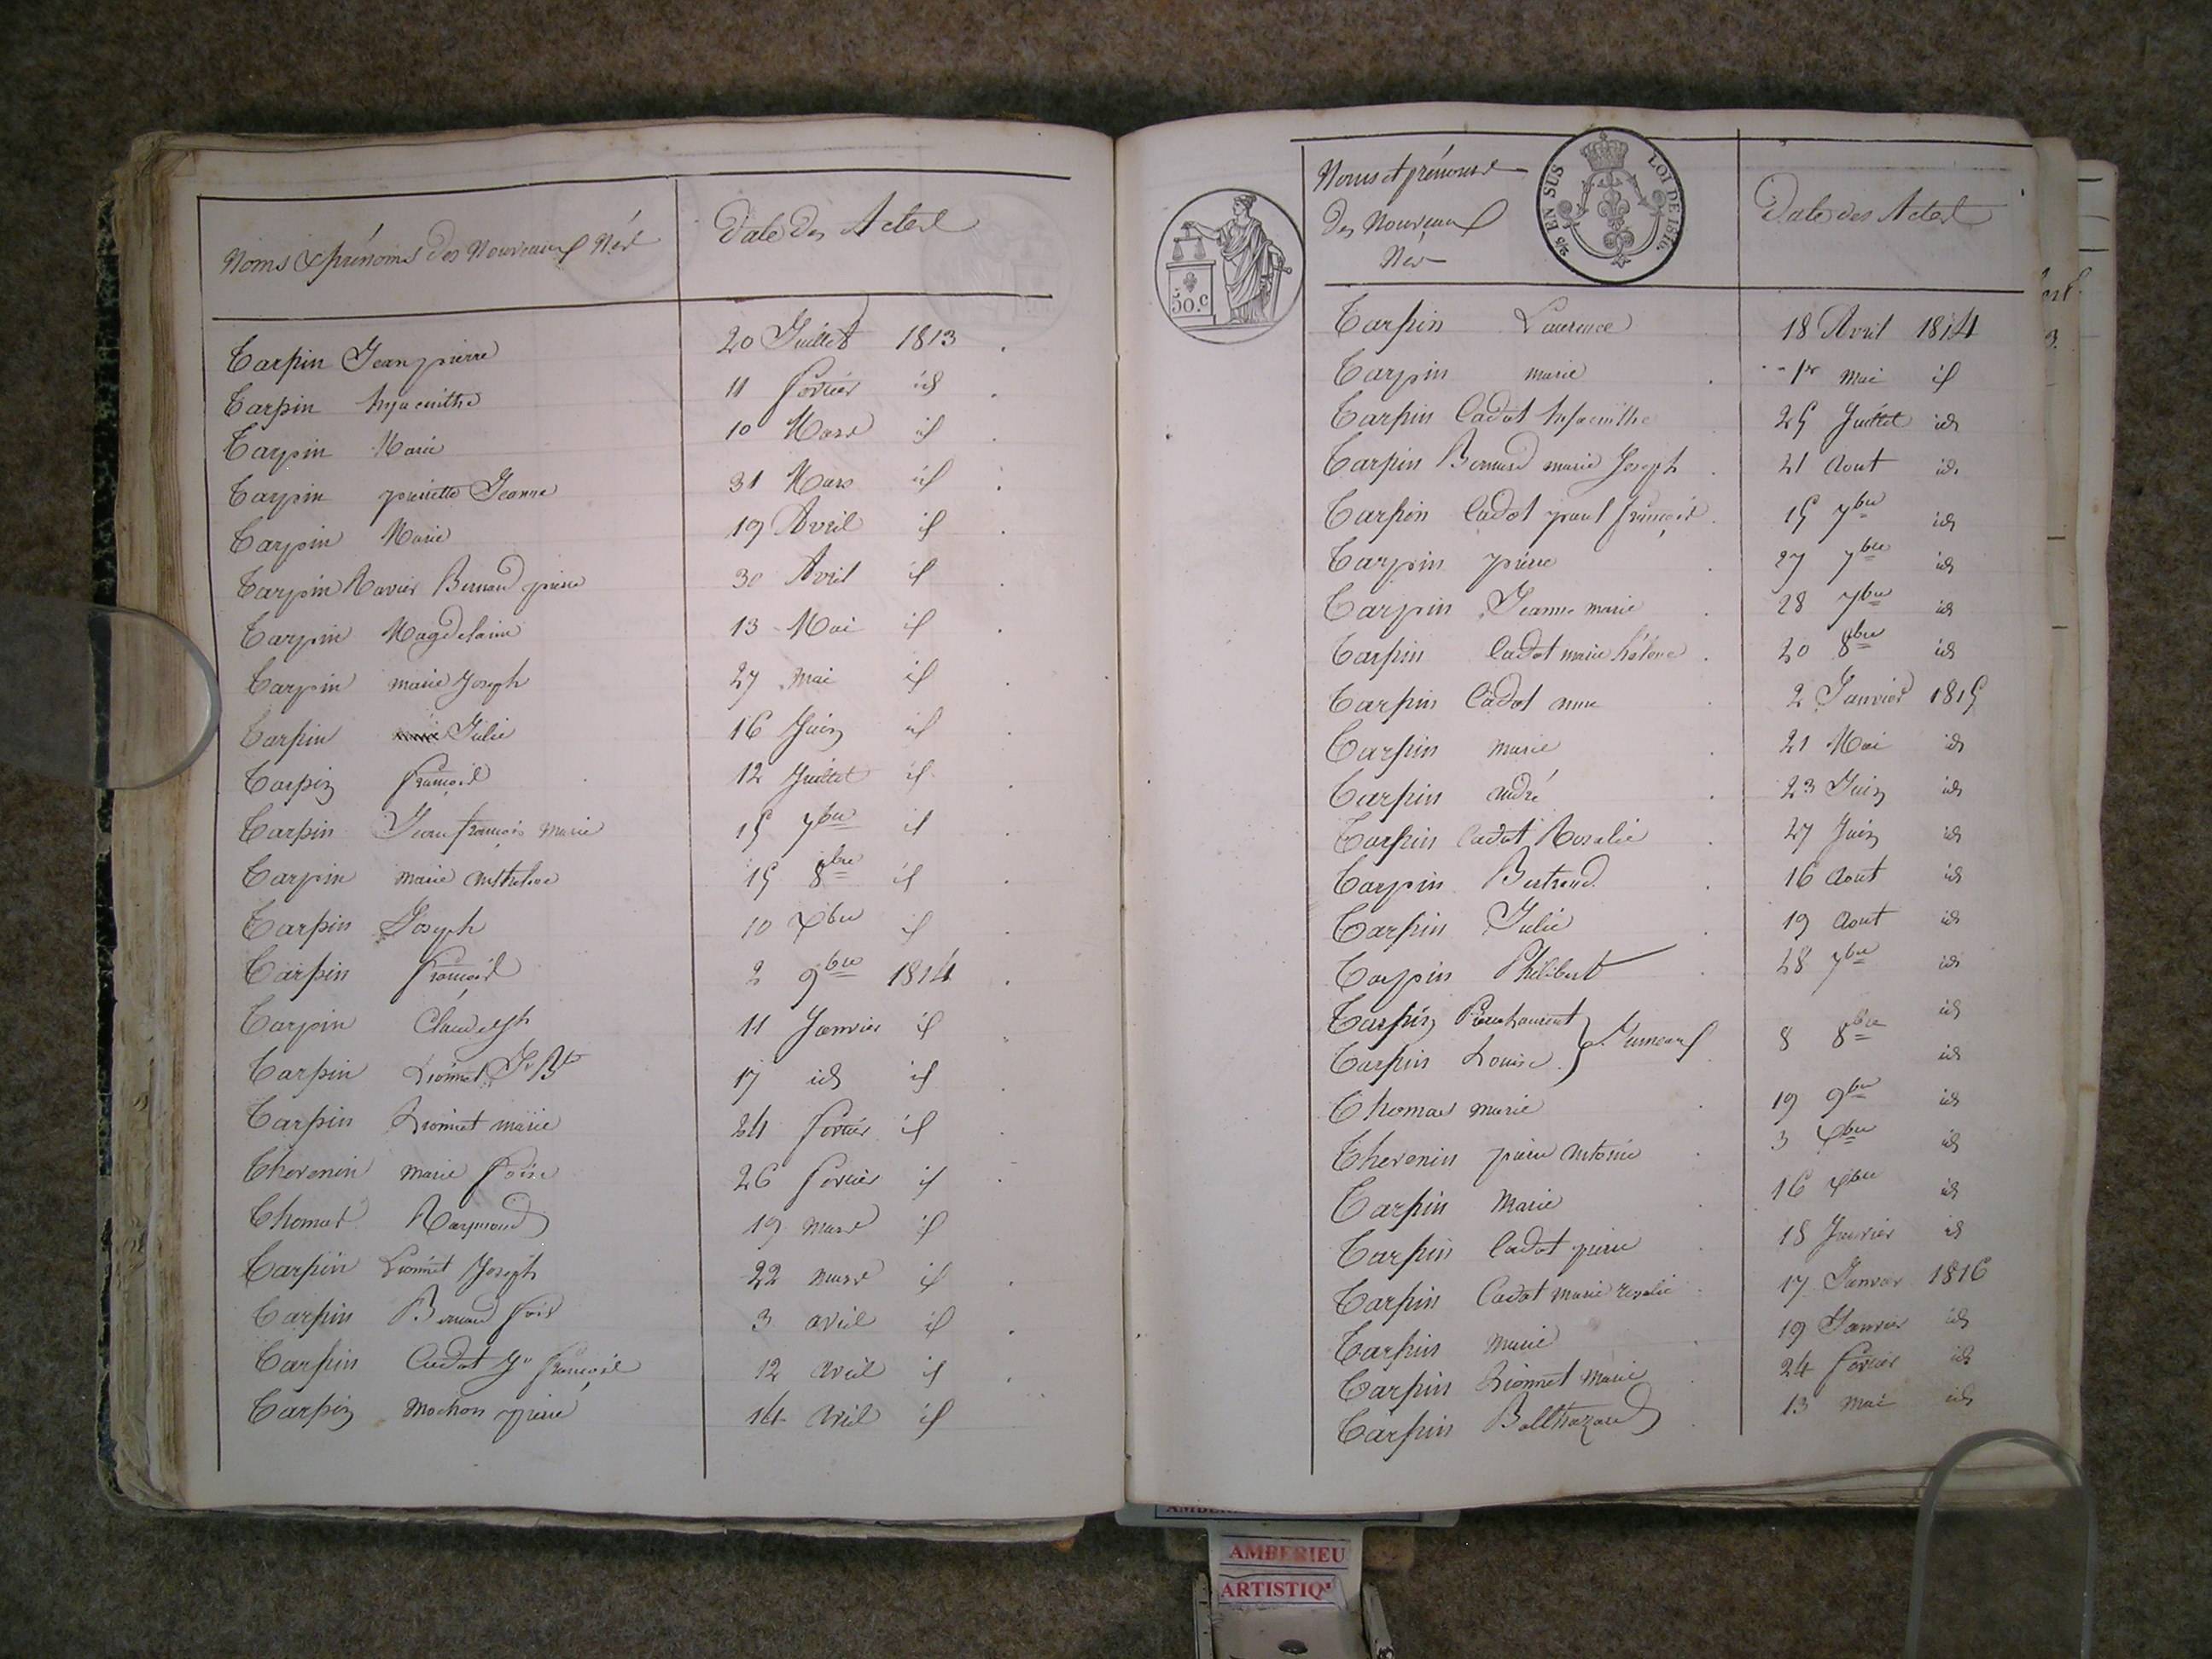 Noms & prénoms des Nouveaux Nés Date des Actes
Tarpin Jean pierre 20 Juillet 1813
Tarpin hyacinthe 11 fevrier id
Tarpin Marie 10 Mars id
Tarpin pierrette Jeanne 31 Mars id
Tarpin Marie 19 Avril id
Tarpin Ravier Bernard pierre 30 Avril id
Tarpin Magdelaine 13 Mai id
Tarpin marie Joseph 27 Mai id
Tarpin Julie 16 Juin id
Tarpin françois 12 Juillet id
Tarpin Jean françois Marie 15 7bre id
Tarpin marie Anthelme 15 8bre id
Tarpin Joseph 10 Xbre id
Tarpin françois 2 9bre 1814
Tarpin Claude jh 11 Janvier id
Tarpin Lionnet Jn Bte 17 id id
Tarpin Lionnet marie 24 fevrier id
Thevenin marie foise 26 fevrier id
Thomas Raymond 19 mars id
Tarpin Lionnet Joseph 22 mars id
Tarpin Bernard fois 3 avril id
Tarpin Cadot Jn françois 12 avril id
Tarpin Mochon pierre 14 Avril id
50.c
25 EN SUS LOI DE 1816.
Noms et prénoms
des Nouveaux
Nés
Date des Actes
Tarpin Laurence 18 Avril 1814
Tarpin marie 1er Mai id
Tarpin Cadot hyacinthe 25 Juillet id
Tarpin Bernard marie Joseph 21 Aout id
Tarpin Cadot paul françois 15 7bre id
Tarpin pierre 27 7bre id
Tarpin Jeanne marie 28 7bre id
Tarpin Cadot marie hélene 20 8bre id
Tarpin Cadot anne 2 Janvier 1815
Tarpin marie 21 Mai id
Tarpin andré 23 Juin id
Tarpin Cadot Rosalie 27 Juin id
Tarpin Bertrand 16 Aout id
Tarpin Julie 19 Aout id
Tarpin Philibert 28 7bre id
Tarpin Pierre Laurent id
Jumeaux 8 8bre
Tarpin Louise id
Thomas marie 19 9bre id
Thevenin pierre antoine 3 Xbre id
Tarpin Marie 16 Xbre id
Tarpin Cadot pierre 18 Janvier id
Tarpin Cadot marie rosalie 17 Janvier 1816
Tarpin Marie 19 Janvier id
Tarpin Lionnet Marie 24 fevrier id
Tarpin Balthazard 13 Mai id
AMBERIEU
ARTISTIQ